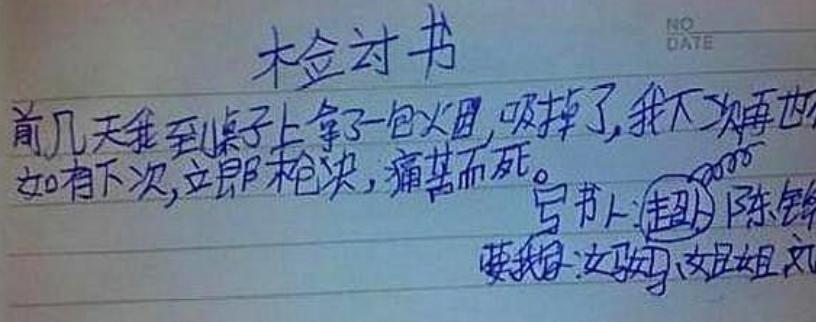 检讨书
NO
DATE
前几天我到桌子上拿了一包烟,吸掉了,我下次再也
如有下次,立即枪决,痛苦而死。
写书人:超人 陈
妈妈、姐姐